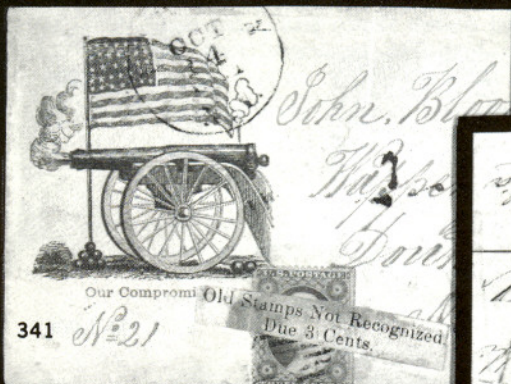 OCT
4
John. Bloo
Wappe
Our Compromi
Old Stamps Not Recognized.
Due 3 Cents.
U.S. POSTAGE
341
No. 21